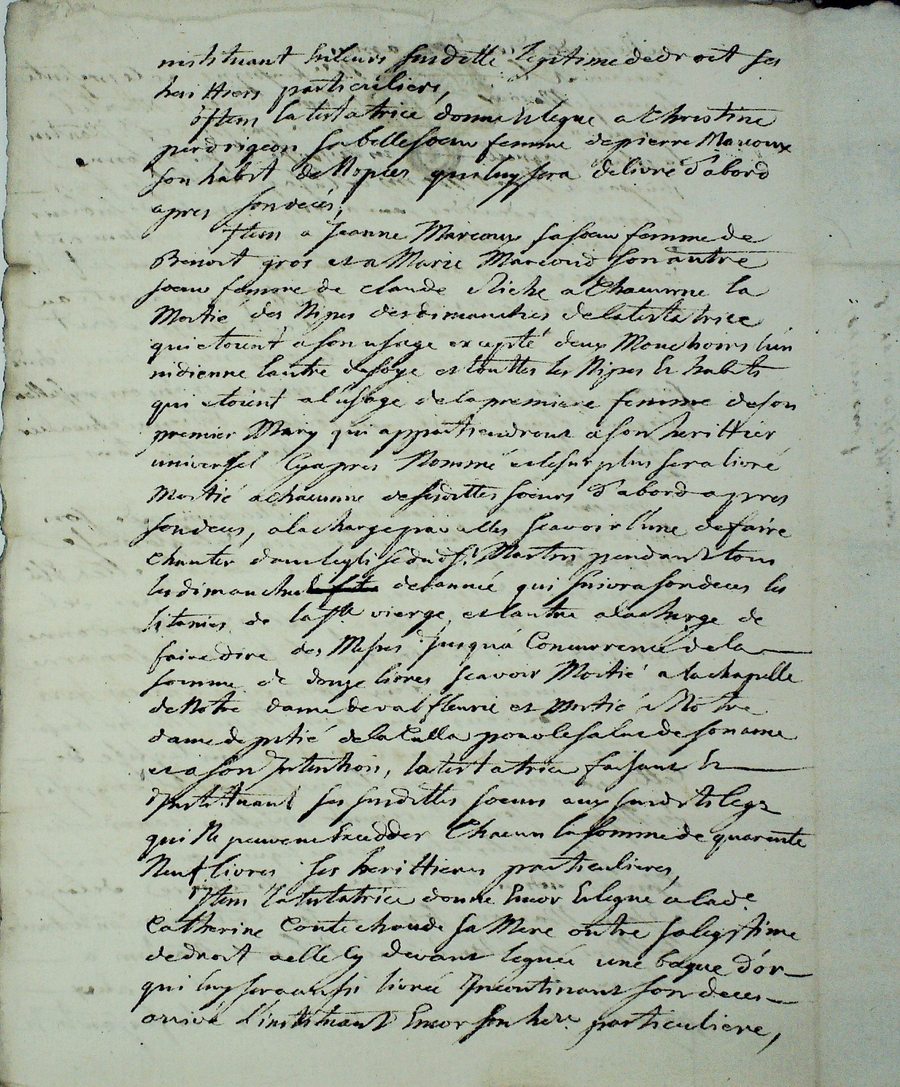 instituant en leurs susditte legitime de droit ses
herittiers particuliers,
Item la testatrice donne et legue a Christine
perdrigeon sa belle soeur femme de pierre Marcoux
son habit de Nopces qui luy sera delivré d'abord
apres son decés,
Item a Jeanne Marcoux sa soeur femme de
Benoit gros et a Marie Marcoud son autre
soeur femme de claude Riche a Chacunne la
Moitié des Nipes des dimanches de la testatrice
qui etoient a son usage excepté deux Mouchoirs l'un
indienne l'autre de soye et touttes les Nipes et habits
qui etoient a l'usage de la premiere femme de son
premier Mary qui appartiendront a son herittier
universel Cy apres Nommé et le surplus sera livré
Moitié a chacunne de sesdittes soeurs d'abord apres
son deces, a la charge par elles scavoir l'une de faire
chanter dans leglise dud St. Martin pendant tous
les dimanches de l'année qui suivra son deces les
litanies de la Ste vierge et l'autre a la charge de
faire dire des Messes Jusqu'a Concurrence de la
somme de douze livres scavoir Moitié a la chapelle
de Notre dame de valfleurie et Moitié a Notre
dame de pitié de la Culla pour le salut de son ame
et a son Intention, la testatrice faisant et
Instituant ses susdittes soeurs aux susdits legs
qui Ne peuvent Excedder Chacun la somme de quarente
Neuf livres ses herittieres particulieres,
Item la testatrice donne Encor et legue a lade
Catherine Contechaude sa Mere outre sa legitime
de droit a elle Cy devant leguée une bague d'or
qui luy sera aussi livrée Incontinant son deces
arrivé l'instituant Encor son here particuliere,